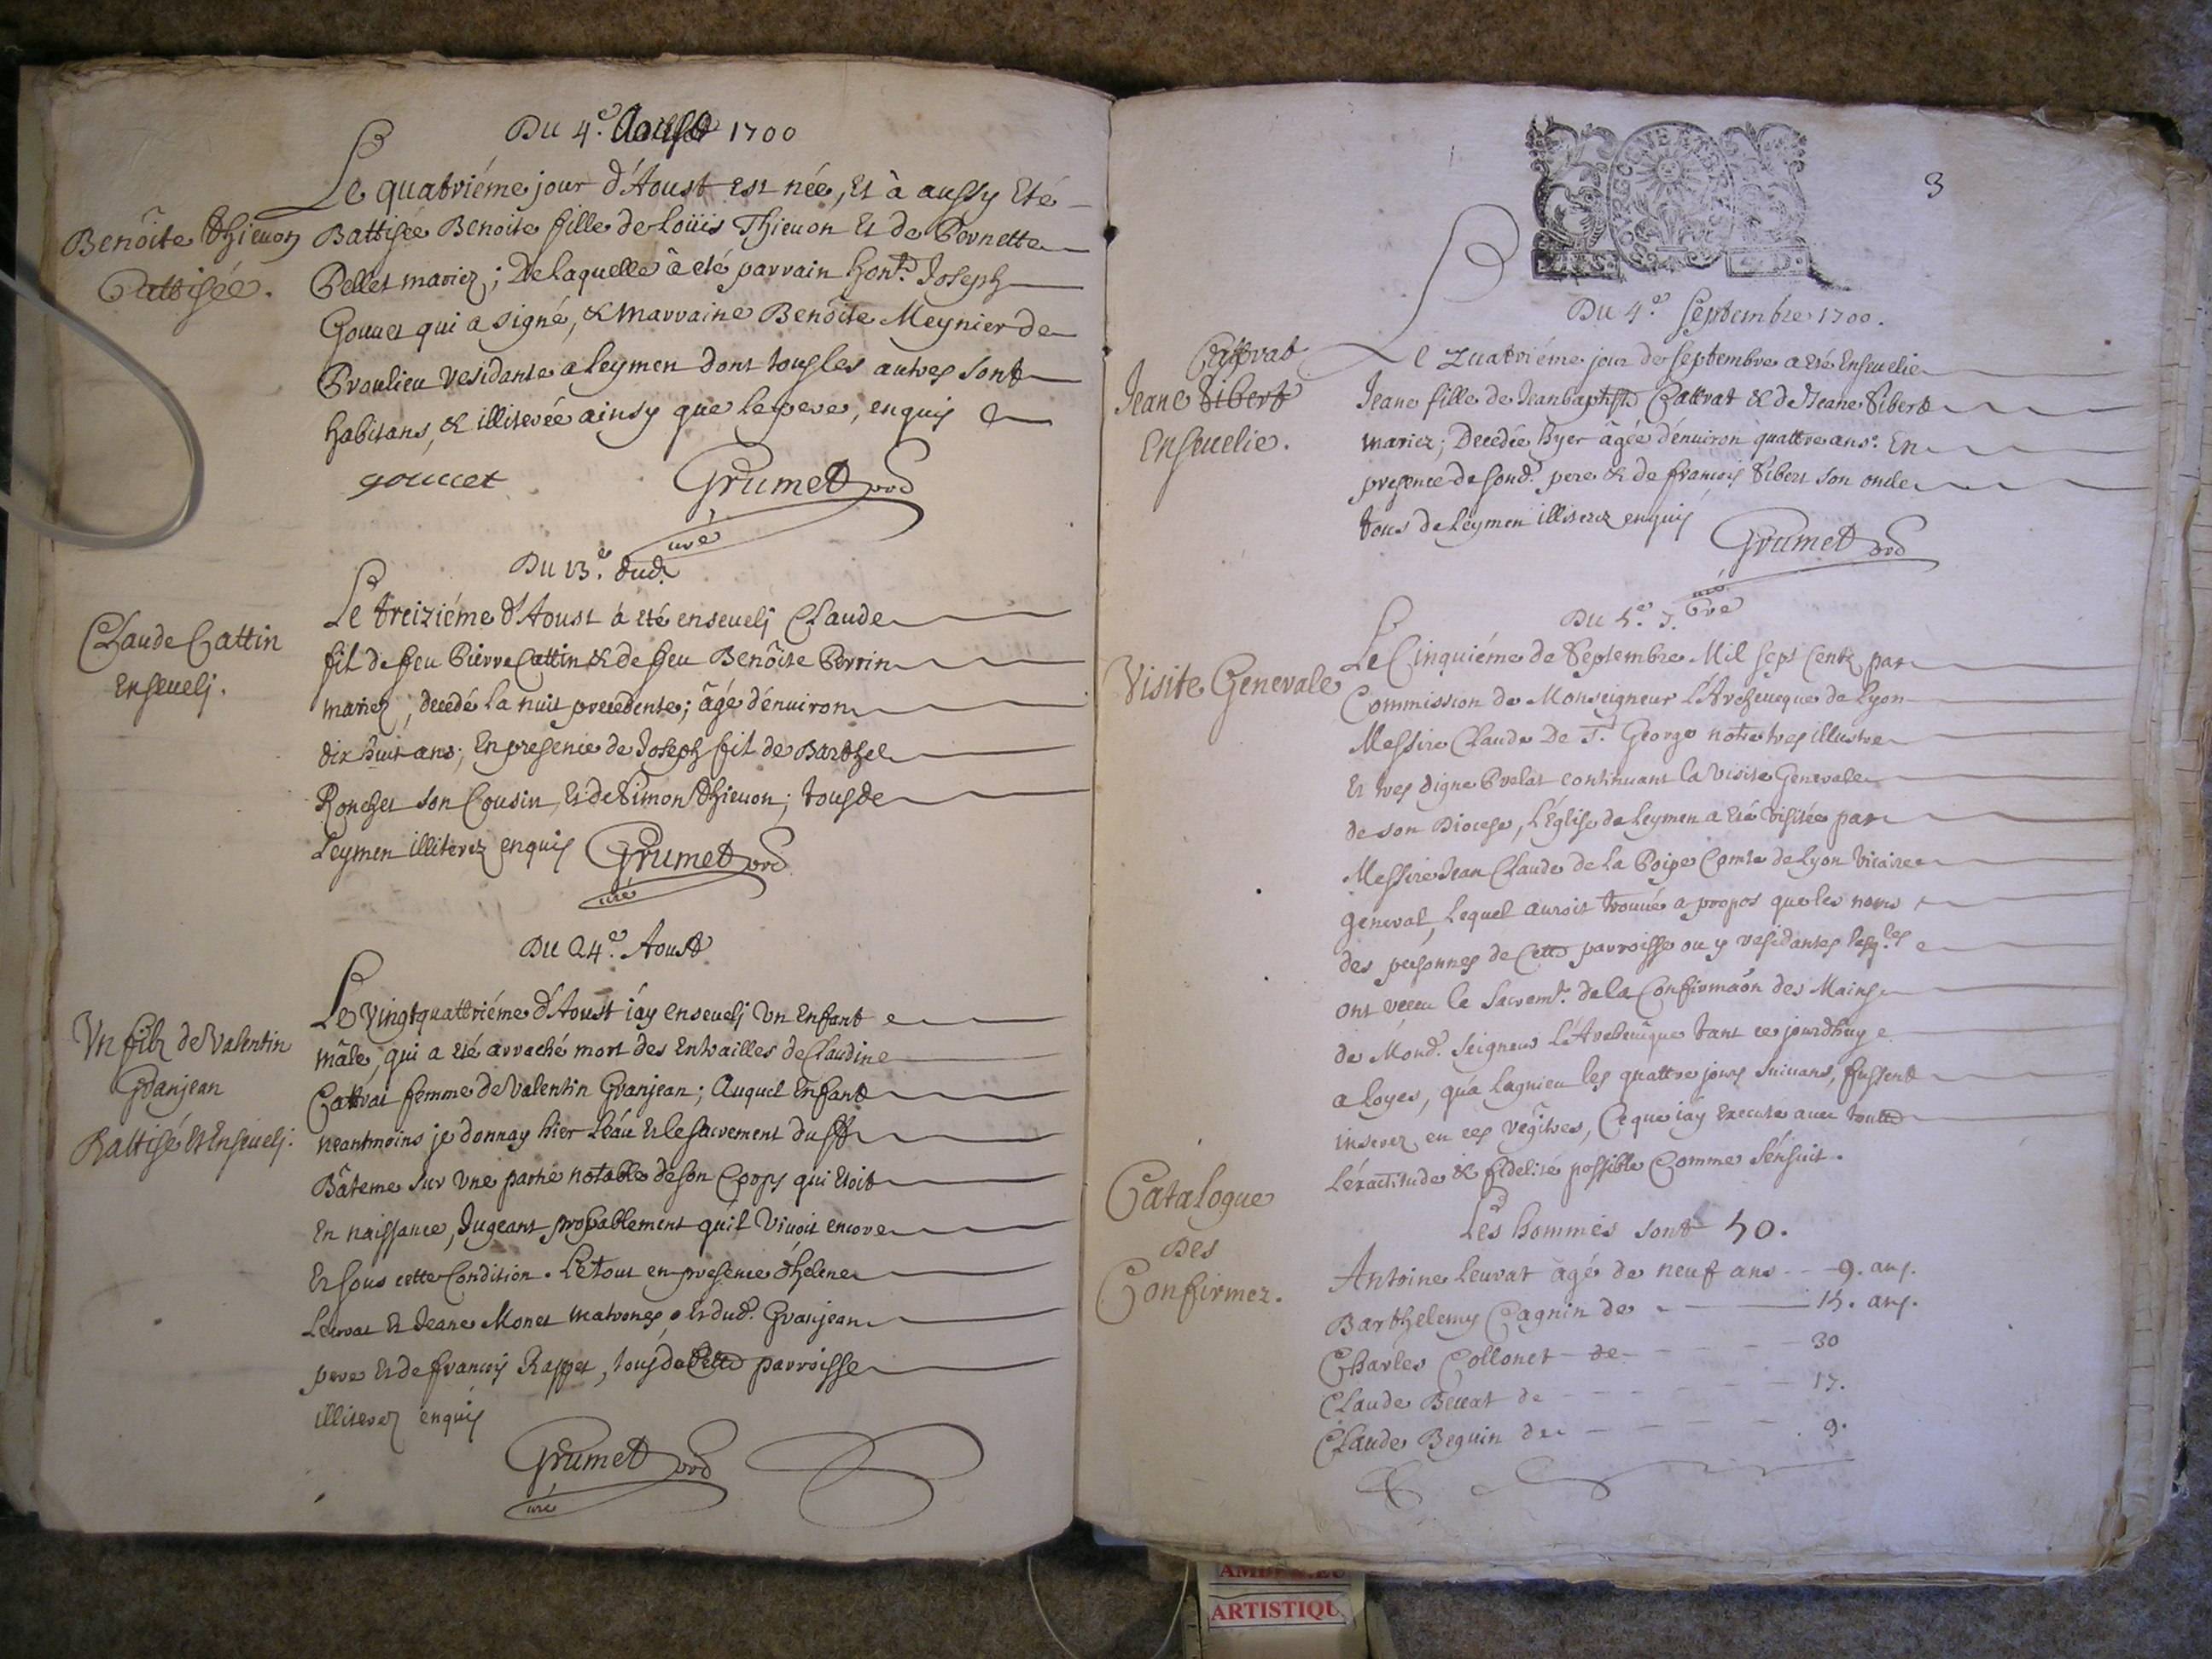 Du 4.e Aoust 1700
Le quatriéme jour d'Aoust est née, et à aussy eté
Benôite Thieuon
Battisée.
Battisée Benoite fille de Loüis Thieuon et de Pernette
Pellet mariez; De laquelle à eté parrain hon.e Joseph
Gouuet qui a signé, & marraine Benôite Meynier de
Proulieu residante a Leymen dont tous les autres sont
habitans, & illiterée ainsy que le pere, enquis
gouuet
Grumet
curé
Du 13.e dud.
Le treiziéme d'Aoust à eté enseueli Claude
Claude Cattin
Enseueli.
fil de feu Pierre Cattin & de feu Benôite Perrin
mariez, decedé la nuit precedente; âgé d'enuiron
dix huit ans; En presence de Joseph fil de Barthel
Ronchet son Cousin, et de Simon Thieuon; tous de
Leymen illiterez enquis
Grumet
curé
Du 24.e Aoust
Le Vingtquattriéme d'Aoust i'ay enseueli Vn Enfant
Vn filz de Valentin
Granjean
Battisé et Enseueli.
mâle, qui a eté arraché mort des Entrailles de Claudine
Cattrat femme de Valentin Granjean; Auquel Enfant
neantmoins je donnay hier l'éau et le sacrement du st
Bâteme sur vne partie notable de son Corps qui etoit
En naissance, Jugeant probablement qu'il Viuoit encore
Et sous cette Condition. Le tout en presence d'helene
Leurat et Jeane Monet matrones et dud. Granjean
pere et de francois Rappet, tous de cette parroisse
illiterez enquis
Grumet
curé
3
Du 4.e Septembre 1700.
Le Quatriéme jour de Septembre a eté Enseuelie
Cattrat
Jeane Sibert
Enseuelie.
Jeane fille de Jean baptiste Cattrat & de Jeane Sibert
mariez; Decedée hyer âgée d'enuiron quattre ans. En
presence de sond. pere & de francois Sibert son oncle
tous de Leymen illiterez enquis
Grumet
curé
Du 5.e 7.bre
Visite Generale
Le Cinquiéme de Septembre Mil sept Centz par
Commission de Monseigneur L'Archeueque de Lyon
Messire Claude De St. George notre tres illustre
Et tres digne Prelat continuant la visite Generale
de son Diocese, L'Église de Leymen a eté Visitée par
Messire Jean Claude de la Poipe Comte de Lyon Vicaire
General, Lequel auroit trouué a propos que les noms
des personnes de Cette parroisse ou y residantes lesq.les
ont receu le Sacrem.t de la Confirmaõn des Mains
de Mond. Seigneur L'Archeueque tant ce jourdhuy
a Loyes, qu'a Lagnieu les quattre jours suiuans, fussent
inserez en ces régitres, Ce que i'ay executé auec toutte
L'éxactitude & fidelité possible Comme s'ensuit.
Catalogue
Des
Confirmez.
Les hommes sont 50.
Antoine Leurat âgé de neuf ans - - 9. ans.
Barthelemy Cagnin de - 15. ans.
Charles Collonet de - - - - 30
Claude Beccat de - - - - - - 17.
Claude Beguin de - - - - - 9.
ARTISTIQU